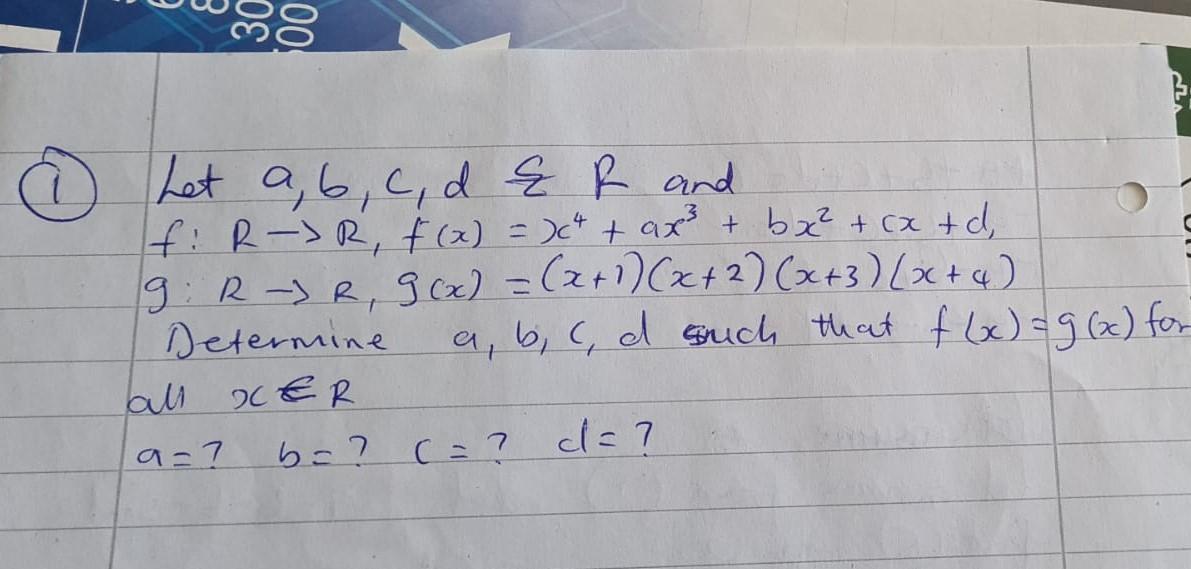 30
500
① Let a, b, c, d ∈ R and
f: R → R, f(x) = x⁴ + ax³ + bx² + cx + d,
g: R → R, g(x) = (x+1)(x+2)(x+3)(x+4)
Determine a, b, c, d such that f(x) = g(x) for
all x ∈ R
a = ? b = ? c = ? d = ?